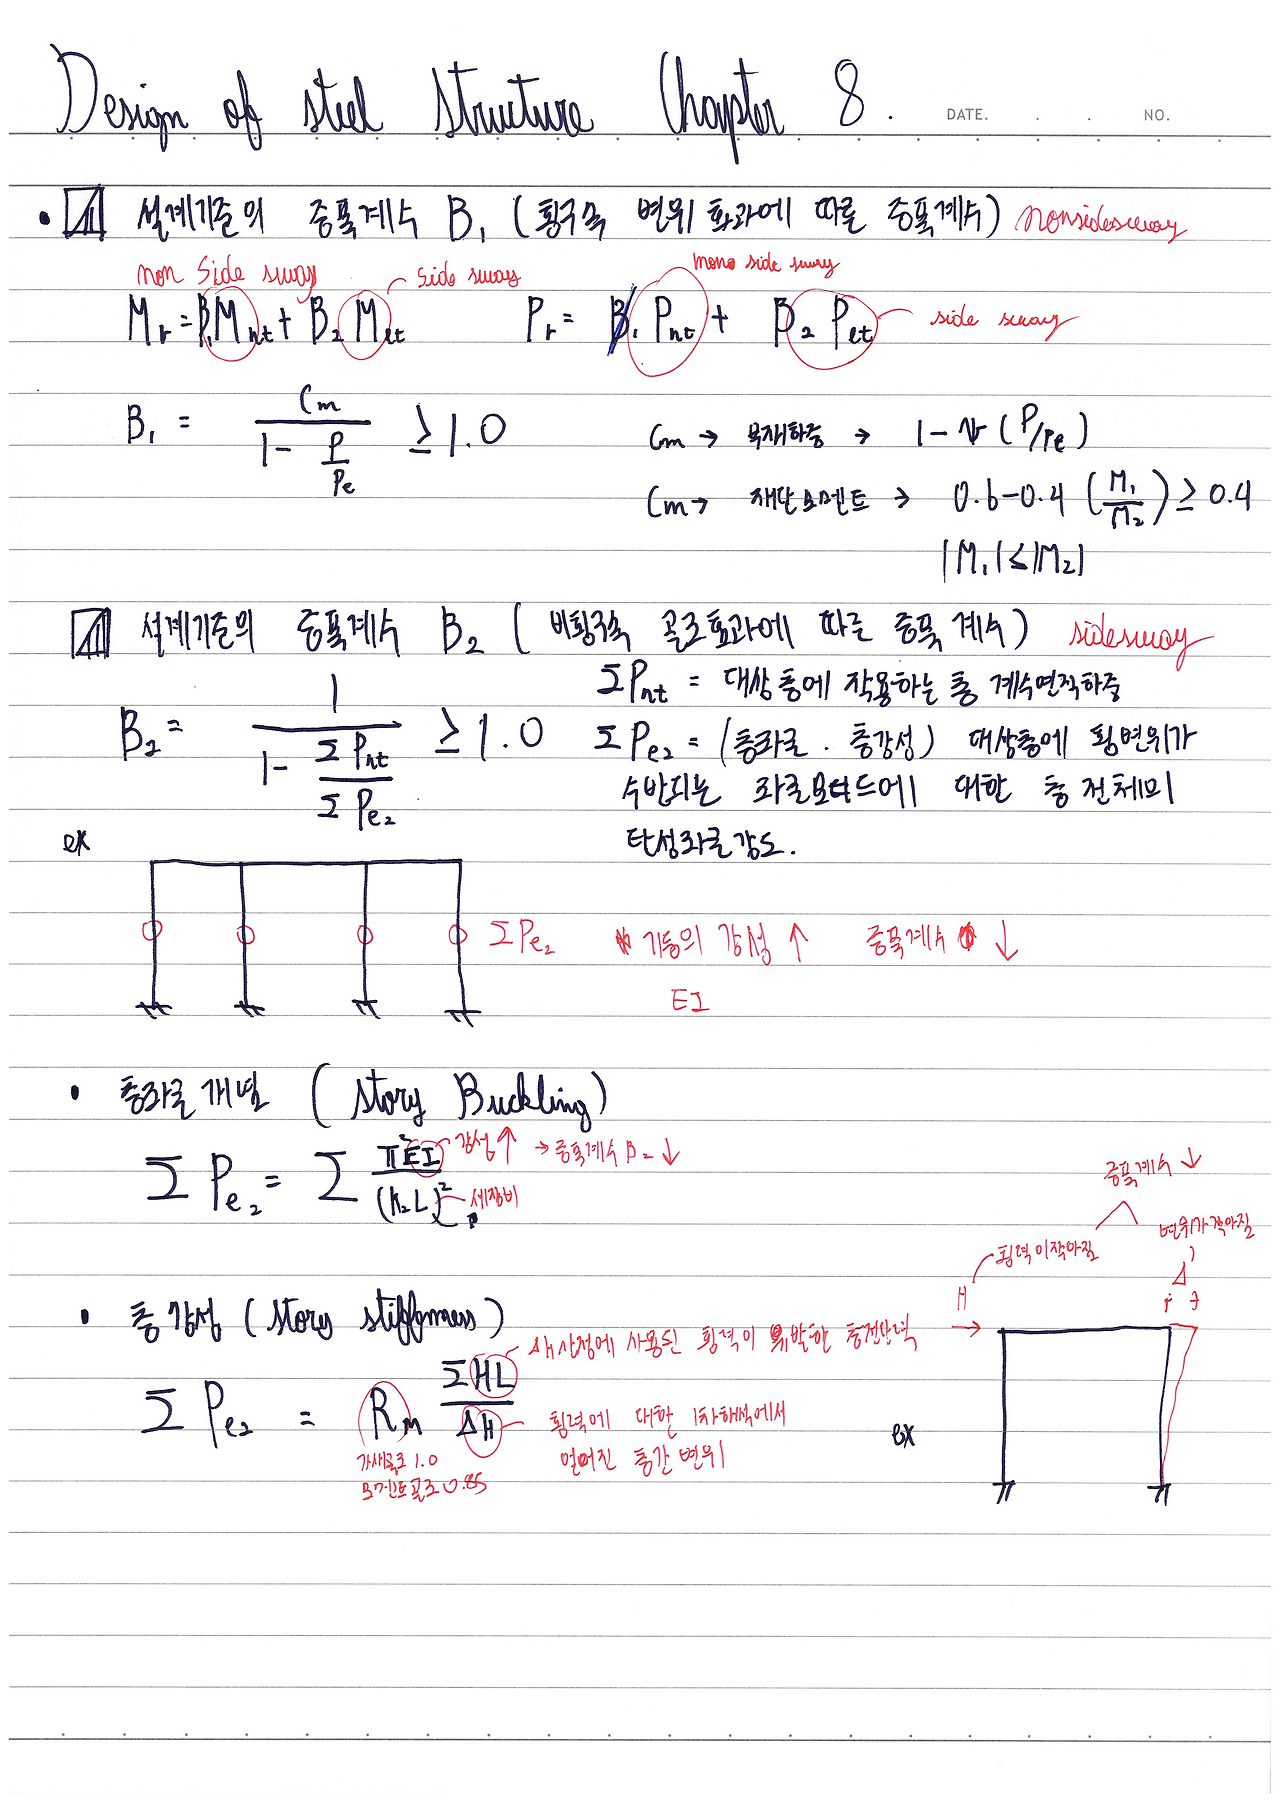 Design of steel structure Chapter 8.
DATE. NO.
설계기준의 증폭계수 B₁ (횡구속 변위 효과에 따른 증폭계수) nonsidesway
non side sway
side sway
mono side sway
Mr = B₁Mnt + B₂Mlt
Pr = B₁Pnt + B₂Plt
side sway
B₁ = Cm / (1 - P/Pe) ≥ 1.0
Cm → 부재하중 → 1 - ψ (P/Pe)
Cm → 재단모멘트 → 0.6-0.4 (M₁/M₂) ≥ 0.4
|M₁| ≤ |M₂|
설계기준의 증폭계수 B₂ (비횡구속 골조효과에 따른 증폭계수) sidesway
B₂ = 1 / (1 - ΣPnt / ΣPe₂) ≥ 1.0
ΣPnt = 대상층에 작용하는 총 계수연직하중
ΣPe₂ = (층좌굴. 층강성) 대상층에 횡변위가
수반되는 좌굴모드에 대한 층 전체의
탄성좌굴강도.
ex
ΣPe₂
기둥의 강성 ↑ 증폭계수 ↓
EI
• 층좌굴 개념 (Story Buckling)
ΣPe₂ = Σ π²EI / (K₂L)²
강성↑ → 증폭계수 B₂ ↓
세장비
증폭계수 ↓
횡력이작아짐
변위가 작아짐
H
Δ
• 층강성 (story stiffness)
ΣPe₂ = RM ΣHL / ΔH
ΔH산정에 사용된 횡력이 유발한 층전단력
횡력에 대한 1차해석에서
얻어진 층간 변위
가새골조 1.0
모멘트골조 0.85
ex